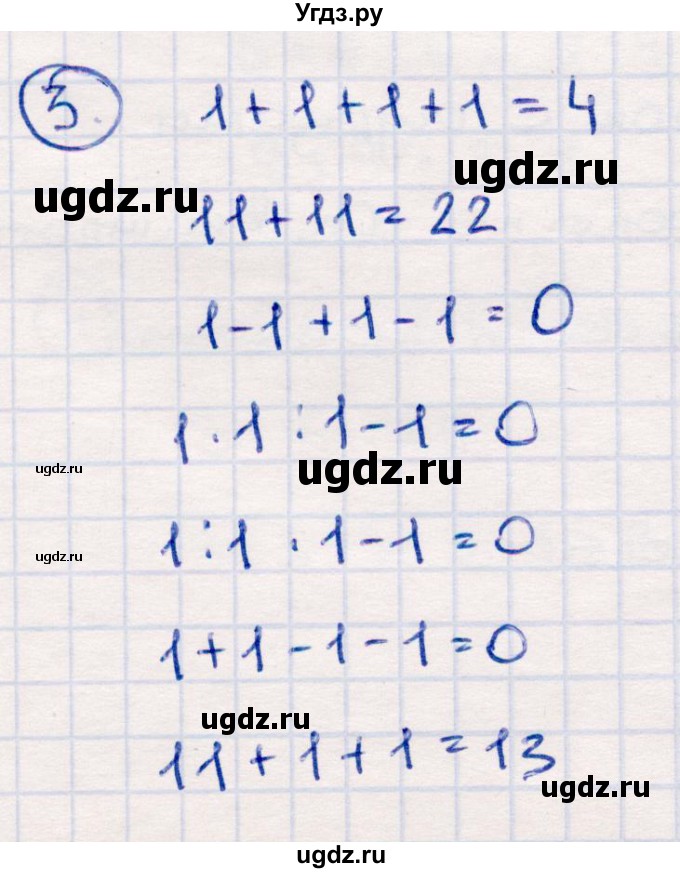 Угдз.ру
5. 1 + 1 + 1 + 1 = 4
ugdz.ru
ugdz.ru
11 + 11 = 22
1 - 1 + 1 - 1 = 0
1 · 1 : 1 - 1 = 0
ugdz.ru
ugdz.ru
1 : 1 · 1 - 1 = 0
ugdz.ru
1 + 1 - 1 - 1 = 0
ugdz.ru
11 + 1 + 1 = 13
ugdz.ru
ugdz.ru